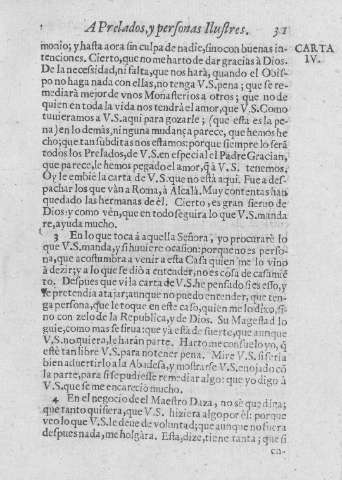 A Prelados, y personas Ilustres. 31
monio; y hasta aora sin culpa de nadie, sino con buenas in-
CARTA
IV.
tenciones. Cierto, que no me harto de dar gracias à Dios.
De la necessidad, ni falta, que nos harà, quando el Obis-
po no haga nada con ellas, no tenga V.S. pena; que se re-
mediarà mejor de vnos Monasterios a otros; que no de
quien en toda la vida nos tendrà el amor, que V.S. Como
tuuieramos a V.S. aqui para gozarle; (que esta es la pe-
na) en lo demàs, ninguna mudança parece, que hemos he-
cho; que tan subditas nos estamos: porque siempre lo seràn
todos los Prelados, de V.S. en especial el Padre Gracian,
que parece, le hemos pegado el amor, q̃ à V.S. tenemos.
Oy le embiè la carta de V.S. que no està aqui. Fue a des-
pachar los que vàn a Roma, à Alcalà. Muy contentas han
quedado las hermanas de èl. Cierto, es gran sieruo de
Dios: y como vèn, que en todo seguira lo que V.S. manda
re, ayuda mucho.
3 En lo que toca à aquella Señora, yo procurarè lo
que V.S. manda, y si huuiere ocasion: porque no es perso-
na, que acostumbra a venir a esta Casa quien me lo vino
à dezir; y a lo que se diò a entender, no es cosa de casamiẽ
to. Despues que vì la carta de V.S. he pensado si es esso, y
se pretendia atajar, aunque no puedo entender, que ten-
ga persona, que le toque en este caso, quien me lo dixo, si
no con zelo de la Republica, y de Dios. Su Magestad lo
guie, como mas se sirua: que yà està de suerte, que aunque
V.S. no quiera, le haràn parte. Harto me consuelo yo, q̃
estè tan libre V.S. para no tener pena. Mire V.S. si seria
bien aduertirlo a la Abadesa, y mostrarse V.S. enojado cõ
la parte, para si se pudiesse remediar algo: que yo digo à
V.S. que se me encareciò mucho.
4 En el negocio de el Maestro Daza, no sè que diga;
que tanto quisiera, que V.S. hiziera algo por èl: porque
veo lo que V.S. le deue de voluntad; que aunque no fuera
despues nada, me holgàra. Esta, dize, tiene tanta; que si
en-